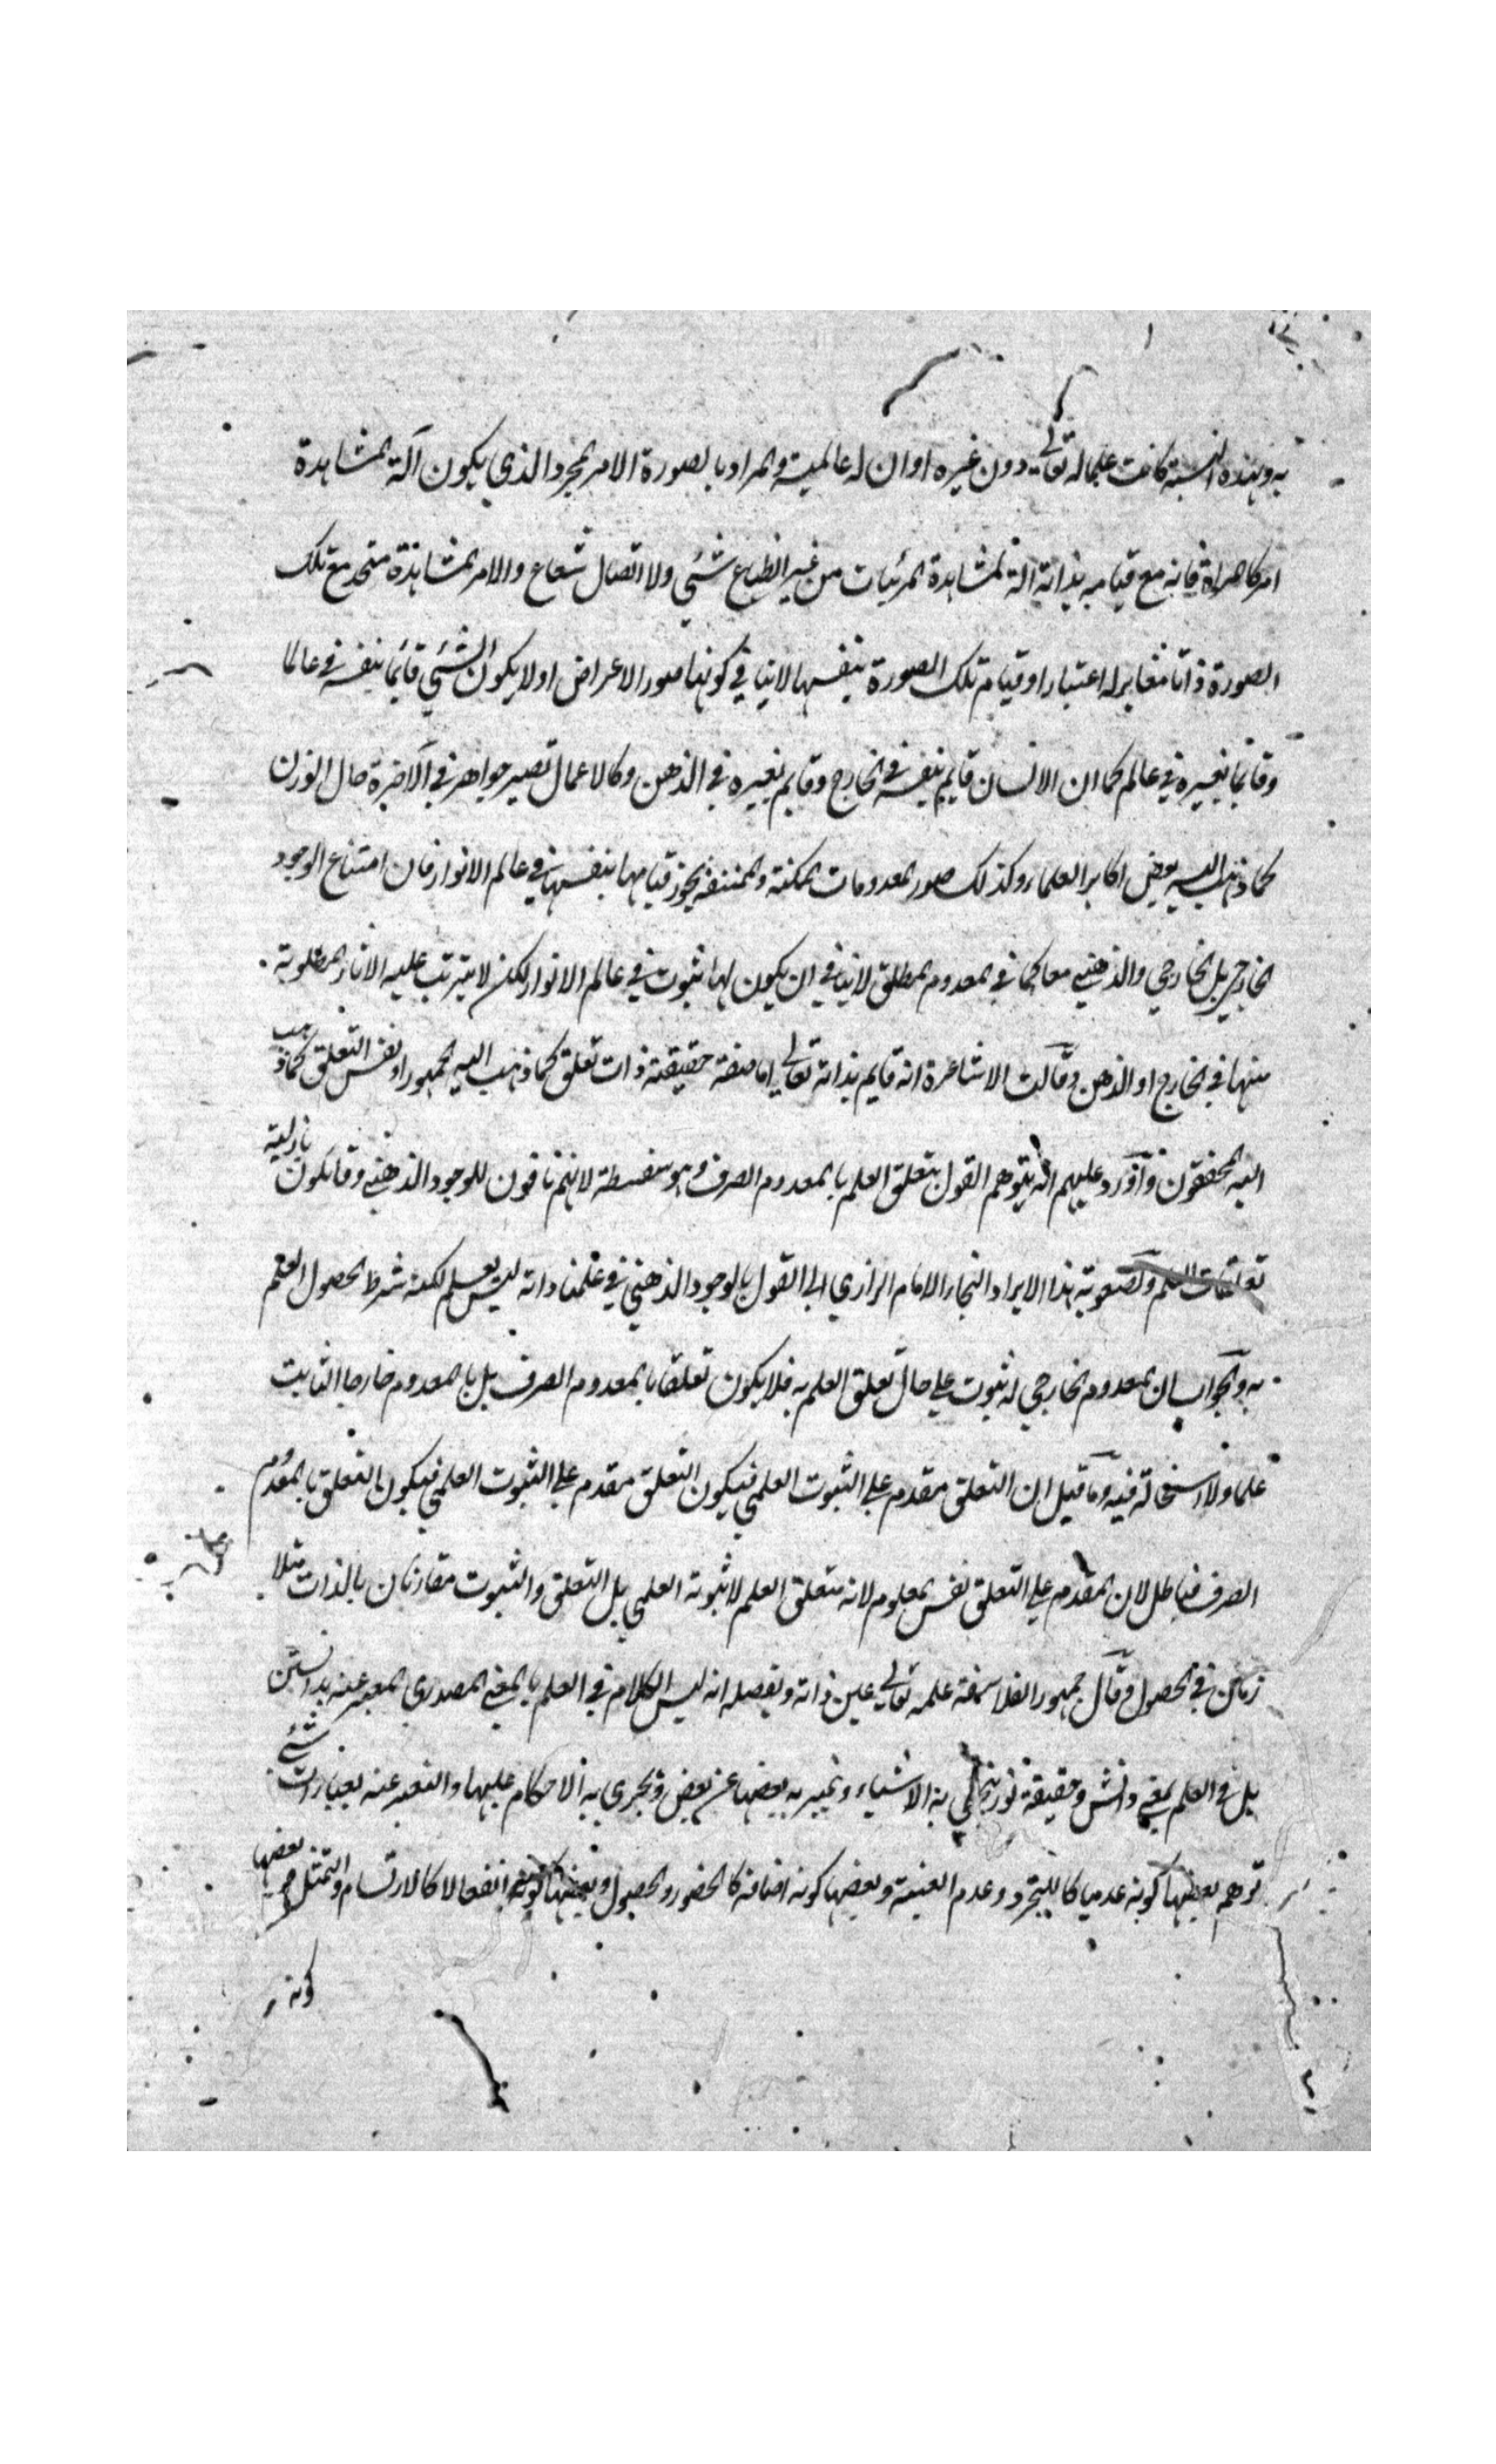 به وبهذه النسبة كانت علما له تعالى دون غيره او ان له عالمية والمراد بالصورة الامر المجرد الذي يكون آلة لمشاهدة
امر كالمرآة فانه مع قيامه بذاته آلة لمشاهدة المرئيات من غير انطباع شئي ولا اتصال شعاع والامر المشاهدة متحد مع تلك
الصورة ذاتا مغاير له اعتبارا وقيام تلك الصورة بنفسها لا ينافي كونها صور الاعراض اولا يكون الشئي قائما بنفسه في عالم
وقائما بغيره في عالم كما ان الانسان قايم بنفسه في الخارج وقايم بغيره في الذهن وكالاعمال تصير جواهر في الآخرة حال الوزن
كما ذهب اليه بعض اكابر العلماء وكذلك صور المعدومات الممكنة والممتنعة يجوز قيامها بنفسها في عالم الانوار فان امتناع الوجود
الخارجي بل الخارجي والذهني معا كما في المعدوم المطلق لا ينافي ان يكون لها ثبوت في عالم الانوار لكن لا يترتب عليه الاثار المطلوبة
منها في الخارج او الذهن وقالت الاشاعرة انه قايم بذاته تعالى اما صفة حقيقية ذات تعلق كما ذهب اليه الجمهور او نفس التعلق كما ذهب
اليه المحققون واورد عليهم انه يتوهم القول بتعلق العلم بالمعدوم الصرف وهو سفسطة لانهم نافون للوجود الذهني وقائلون بازلية
تعلقات العلم ولصعوبة هذا الايراد التجاء الامام الرازي الى القول بالوجود الذهني في علمنا وانه ليس بعلم لكنه شرط لحصول العلم
به والجواب ان المعدوم الخارجي له ثبوت علمي حال تعلق العلم به فلا يكون تعلقا بالمعدوم الصرف بل بالمعدوم خارجا الثابت
علما ولا استحالة فيه وما قيل ان التعلق مقدم على الثبوت العلمي فيكون التعلق مقدم على الثبوت العلمي فيكون التعلق بالمعدوم
الصرف فباطل لان المقدم على التعلق نفس المعلوم لانه متعلق العلم لا ثبوته العلمي بل التعلق والثبوت مقارنان بالذات متلا
زمان في الحصول وقال جمهور الفلاسفة علمه تعالى عين ذاته وتفصيله انه ليس الكلام في العلم بالمعنى المصدري المعبر عنه بدانستن
بل في العلم بمعنى دانش وحقيقة نور ينجلي به الاشياء ويتميز به بعضها عن بعض ويجرى به الاحكام عليها والتعبير عنه بعبارات شتى
توهم بعضها كونه عدميا كالتجرد وعدم الغيبة وبعضها كونه اضافة كالحضور والحصول وبعضها كونه انفعالا كالارتسام والتمثل وبعضها
كونه